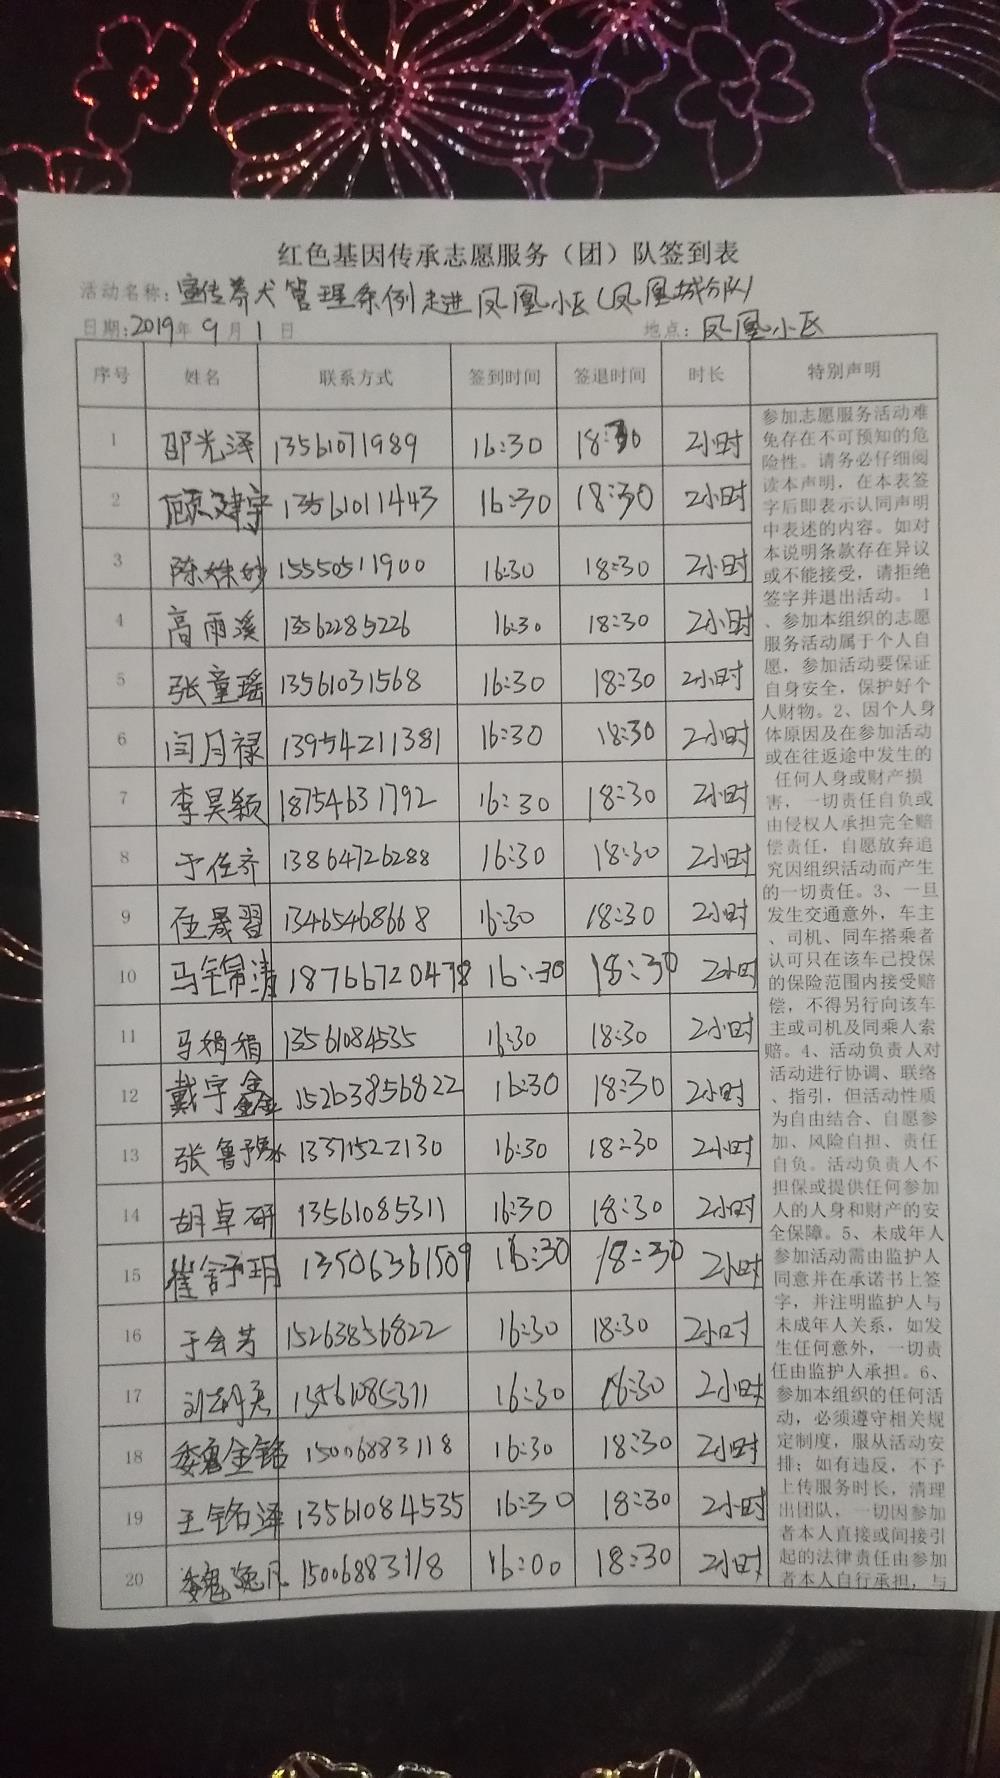 红色基因传承志愿服务（团）队签到表
活动名称：宣传养犬管理条例走进凤凰小区(凤凰城分队)
日期:2019年 9月 1日 地点：凤凰小区
序号 姓名 联系方式 签到时间 签退时间 时长 特别声明
1 邵光泽 13561071989 16:30 18:30 2小时
2 顾建宇 13561011443 16:30 18:30 2小时
3 陈姝妙 15550511900 16:30 18:30 2小时
4 高雨溪 13562285226 16:30 18:30 2小时
5 张童瑶 13561031568 16:30 18:30 2小时
6 闫月禄 13954211381 16:30 18:30 2小时
7 李昊颖 18754631792 16:30 18:30 2小时
8 于佐齐 13864726288 16:30 18:30 2小时
9 晟習 13465468668 16:30 18:30 2小时
10 马锦清 18766720478 16:30 18:30 2小时
11 马娟娟 13561084535 16:30 18:30 2小时
12 戴宇鑫 15263856822 16:30 18:30 2小时
13 张鲁豫 13371522130 16:30 18:30 2小时
14 胡卓研 13561085311 16:30 18:30 2小时
15 崔舒玥 13506361509 16:30 18:30 2小时
16 于会芳 15263856822 16:30 18:30 2小时
17 刘 13561085311 16:30 18:30 2小时
18 魏金铭 15006883118 16:30 18:30 2小时
19 王铭泽 13561084535 16:30 18:30 2小时
20 魏逸凡 15006883118 16:00 18:30 2小时
参加志愿服务活动难
免存在不可预知的危
险性。请务必仔细阅
读本声明，在本表签
字后即表示认同声明
中表述的内容。如对
本说明条款存在异议
或不能接受，请拒绝
签字并退出活动。 1
、参加本组织的志愿
服务活动属于个人自
愿，参加活动要保证
自身安全，保护好个
人财物。2、因个人身
体原因及在参加活动
或在往返途中发生的
任何人身或财产损
害，一切责任自负或
由侵权人承担完全赔
偿责任，自愿放弃追
究因组织活动而产生
的一切责任。3、一旦
发生交通意外，车主
、司机、同车搭乘者
认可只在该车已投保
的保险范围内接受赔
偿，不得另行向该车
主或司机及同乘人索
赔。4、活动负责人对
活动进行协调、联络
、指引，但活动性质
为自由结合、自愿参
加、风险自担、责任
自负。活动负责人不
担保或提供任何参加
人的人身和财产的安
全保障。5、未成年人
参加活动需由监护人
同意并在承诺书上签
字，并注明监护人与
未成年人关系，如发
生任何意外，一切责
任由监护人承担。6、
参加本组织的任何活
动，必须遵守相关规
定制度，服从活动安
排；如有违反，不予
上传服务时长，清理
出团队，一切因参加
者本人直接或间接引
起的法律责任由参加
者本人自行承担，与